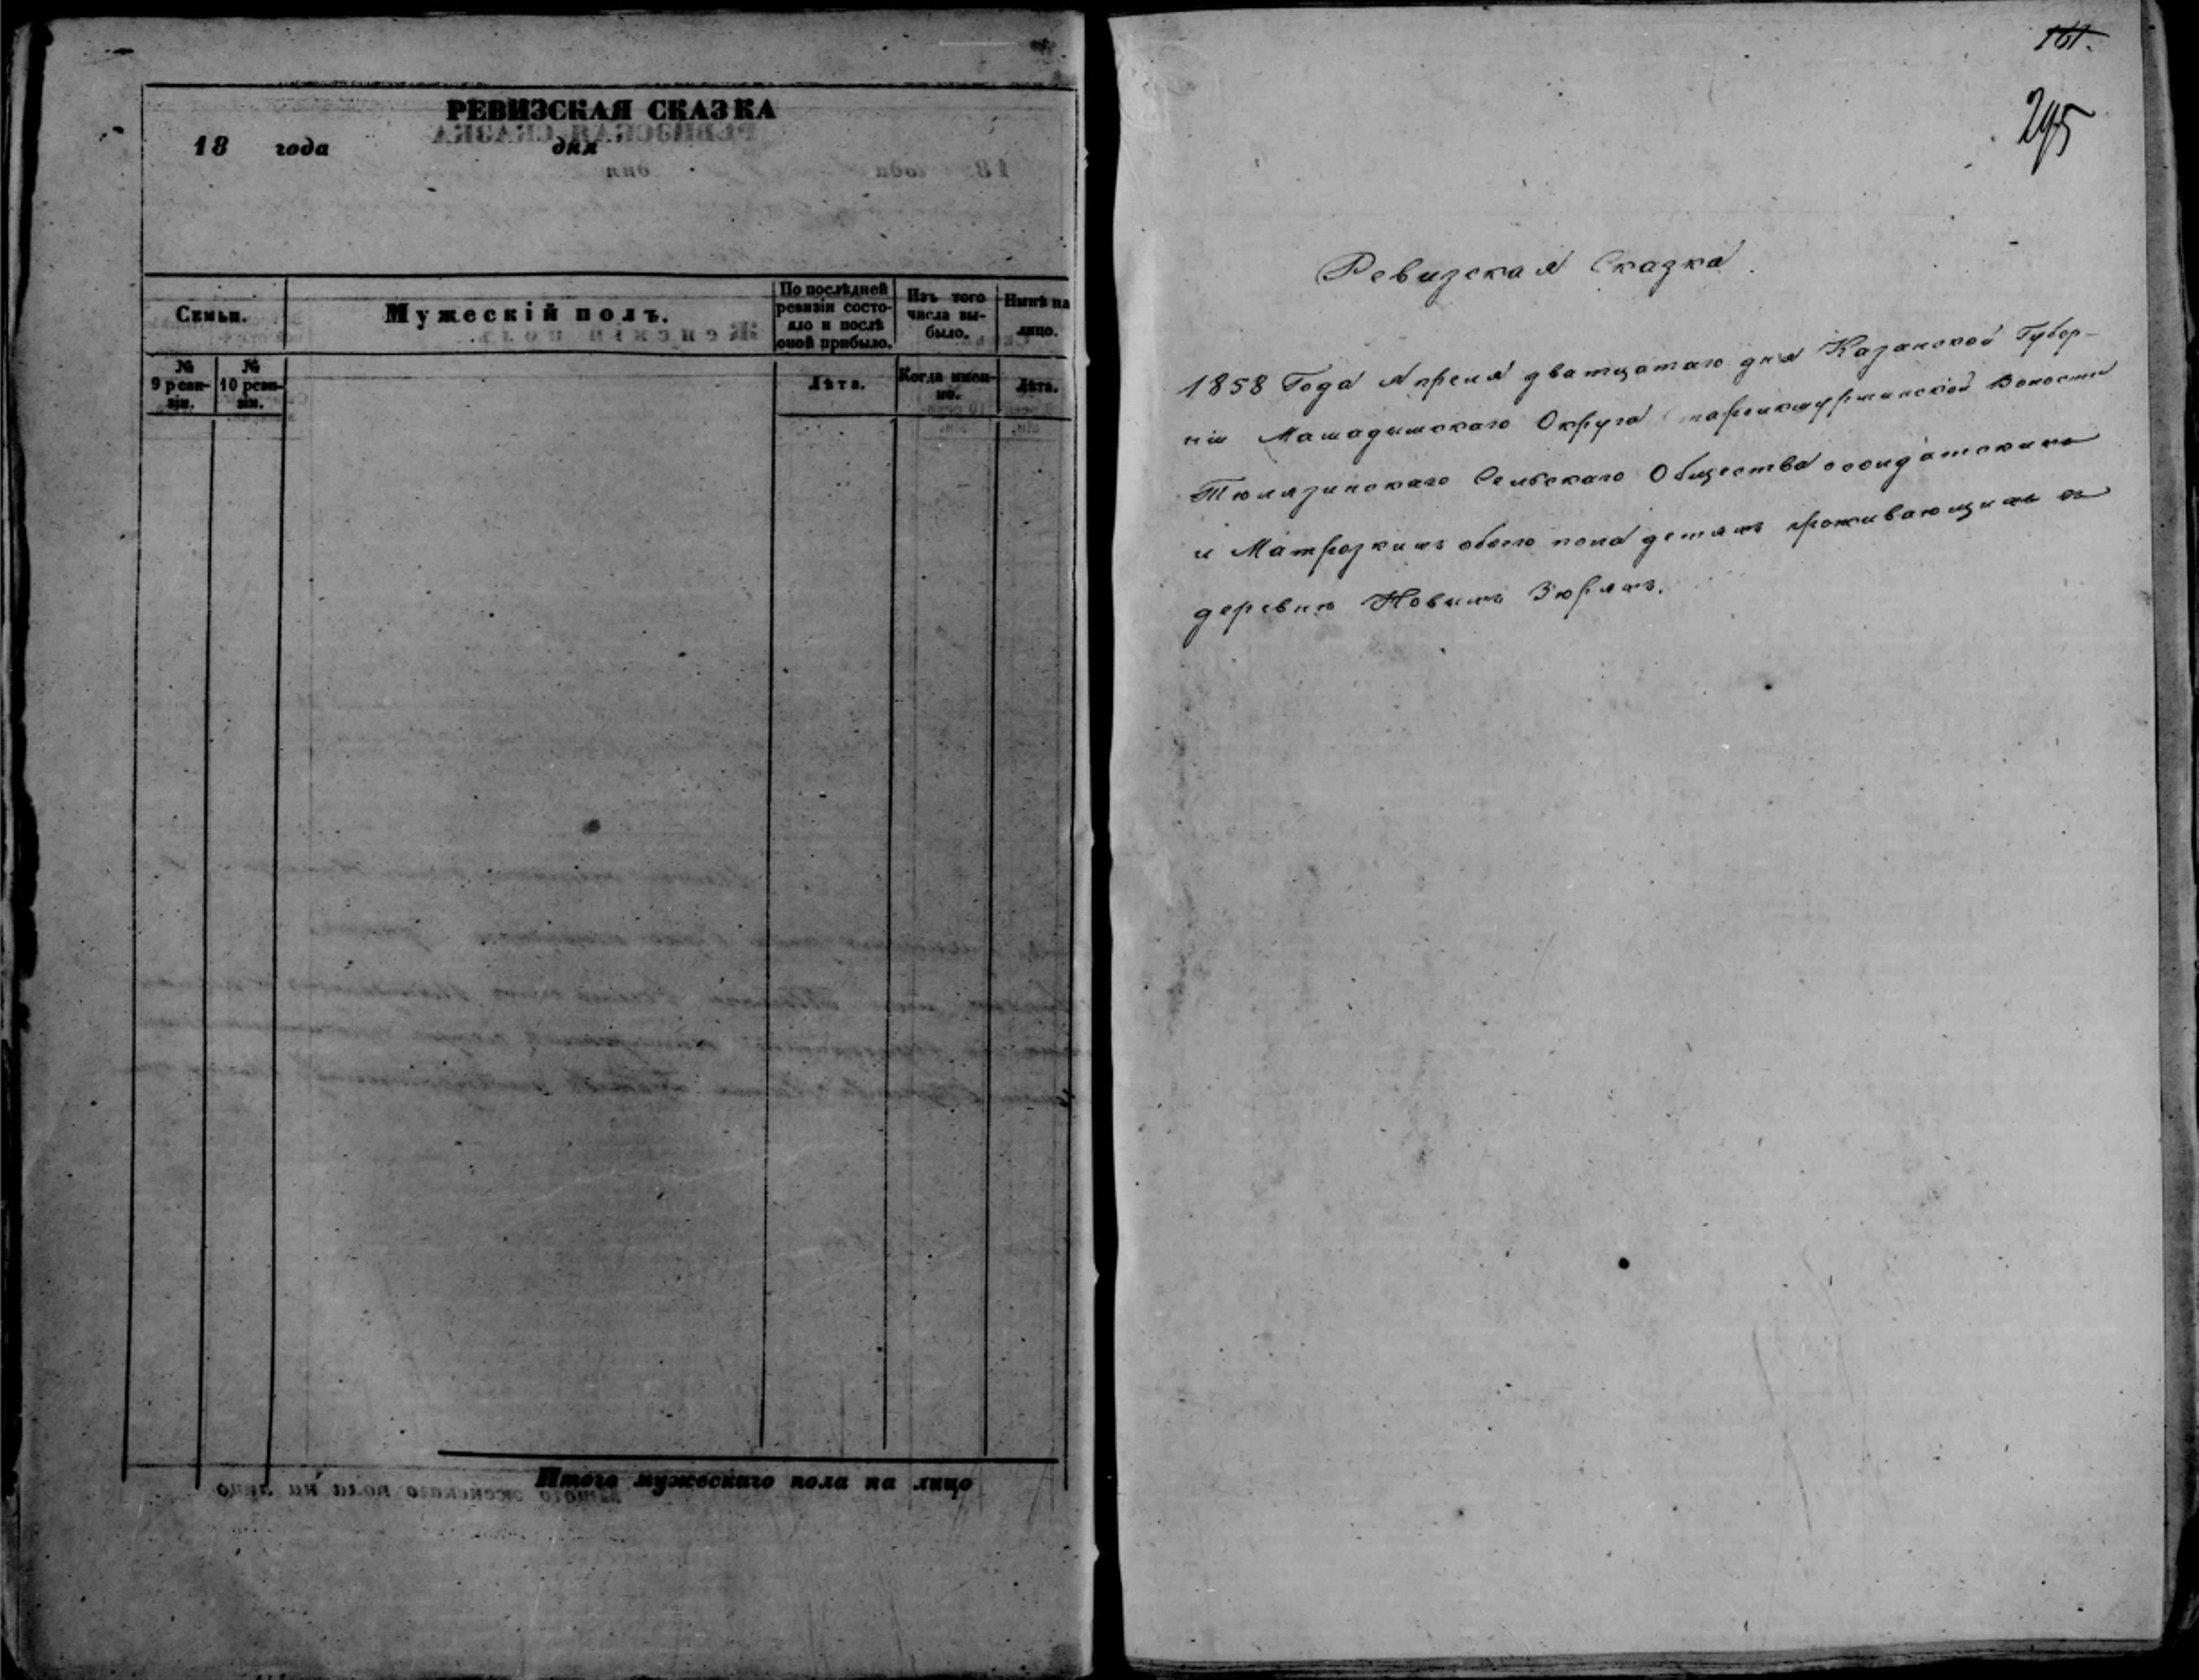 РЕВИЗСКАЯ СКАЗКА
18 года дня
Семьи.
Мужескій полъ.
По послѣдней ревизіи состояло и послѣ оной прибыло.
Изъ того числа выбыло.
Нынѣ на лицо.
№ 9 ревизіи.
№ 10 ревизіи.
Лѣта.
Когда именно.
Лѣта.
Итого мужескаго пола на лицо
161.
295
Ревизская Сказка.
1858 Года Апреля дватцатаго дня Казанской Губер-
ніи Мамадышскаго Округа Волости
Тюлязинскаго Сельскаго Общества солдатскимъ
и Матрозкимъ обоего пола детямъ проживающимъ въ
деревнѣ Новыхъ Зюряхъ.